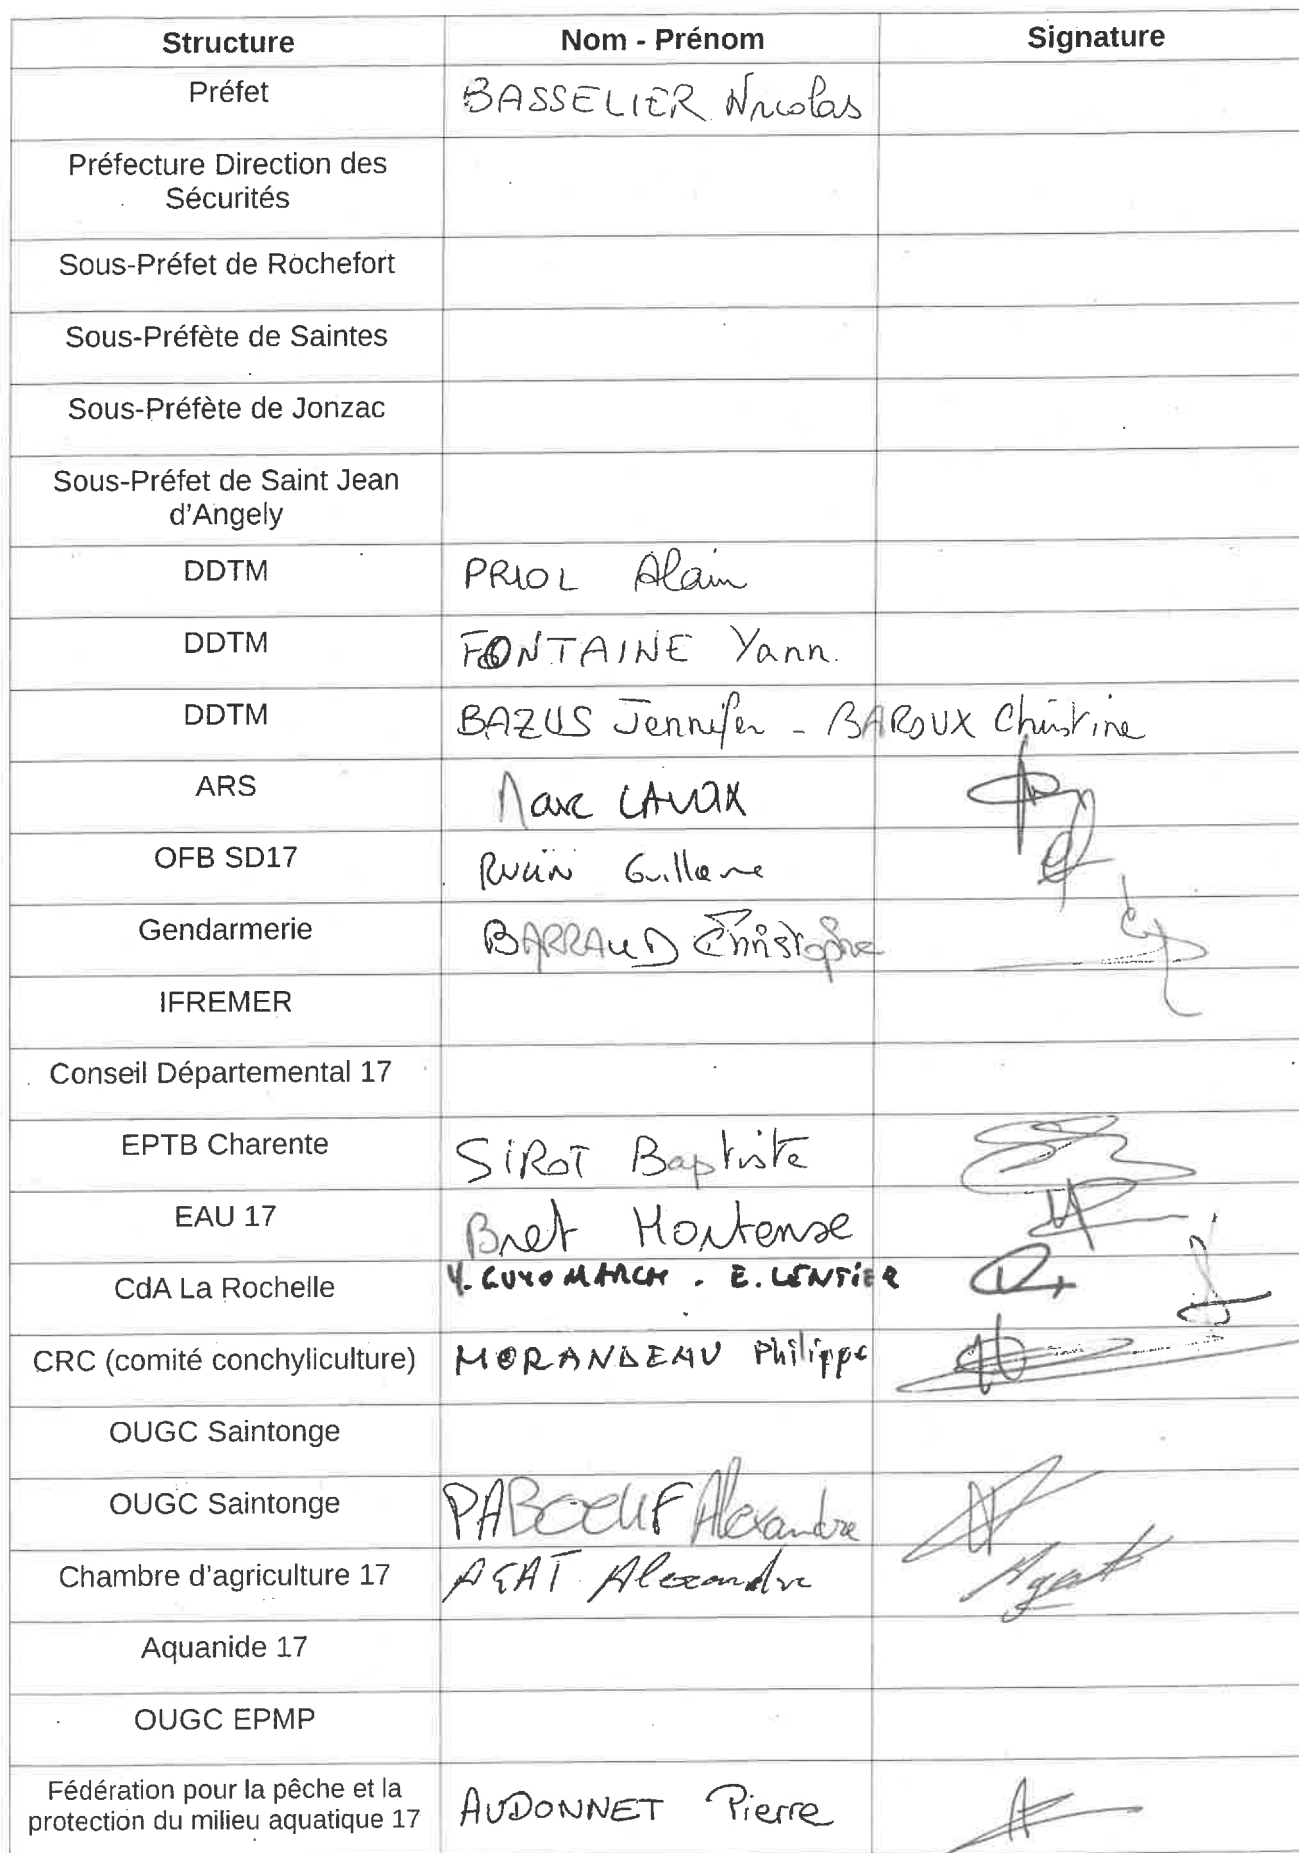 Structure Nom - Prénom Signature
Préfet BASSELIER Nicolas
Préfecture Direction des
Sécurités
Sous-Préfet de Rochefort
Sous-Préfète de Saintes
Sous-Préfète de Jonzac
Sous-Préfet de Saint Jean
d'Angely
DDTM PRIOL Alain
DDTM FONTAINE Yann.
DDTM BAZUS Jennifer - BAROUX Christine
ARS Marc
OFB SD17
Gendarmerie BARRAUD Christophe
IFREMER
Conseil Départemental 17
EPTB Charente SIROT Baptiste
EAU 17 Bret Hortense
CdA La Rochelle Y. GUYOMARCH . E. LENTIER
CRC (comité conchyliculture) MORANDEAU Philippe
OUGC Saintonge
OUGC Saintonge PABOEUF Alexandre
Chambre d'agriculture 17 AGAT Alexandre Agat
Aquanide 17
OUGC EPMP
Fédération pour la pêche et la
protection du milieu aquatique 17 AUDONNET Pierre